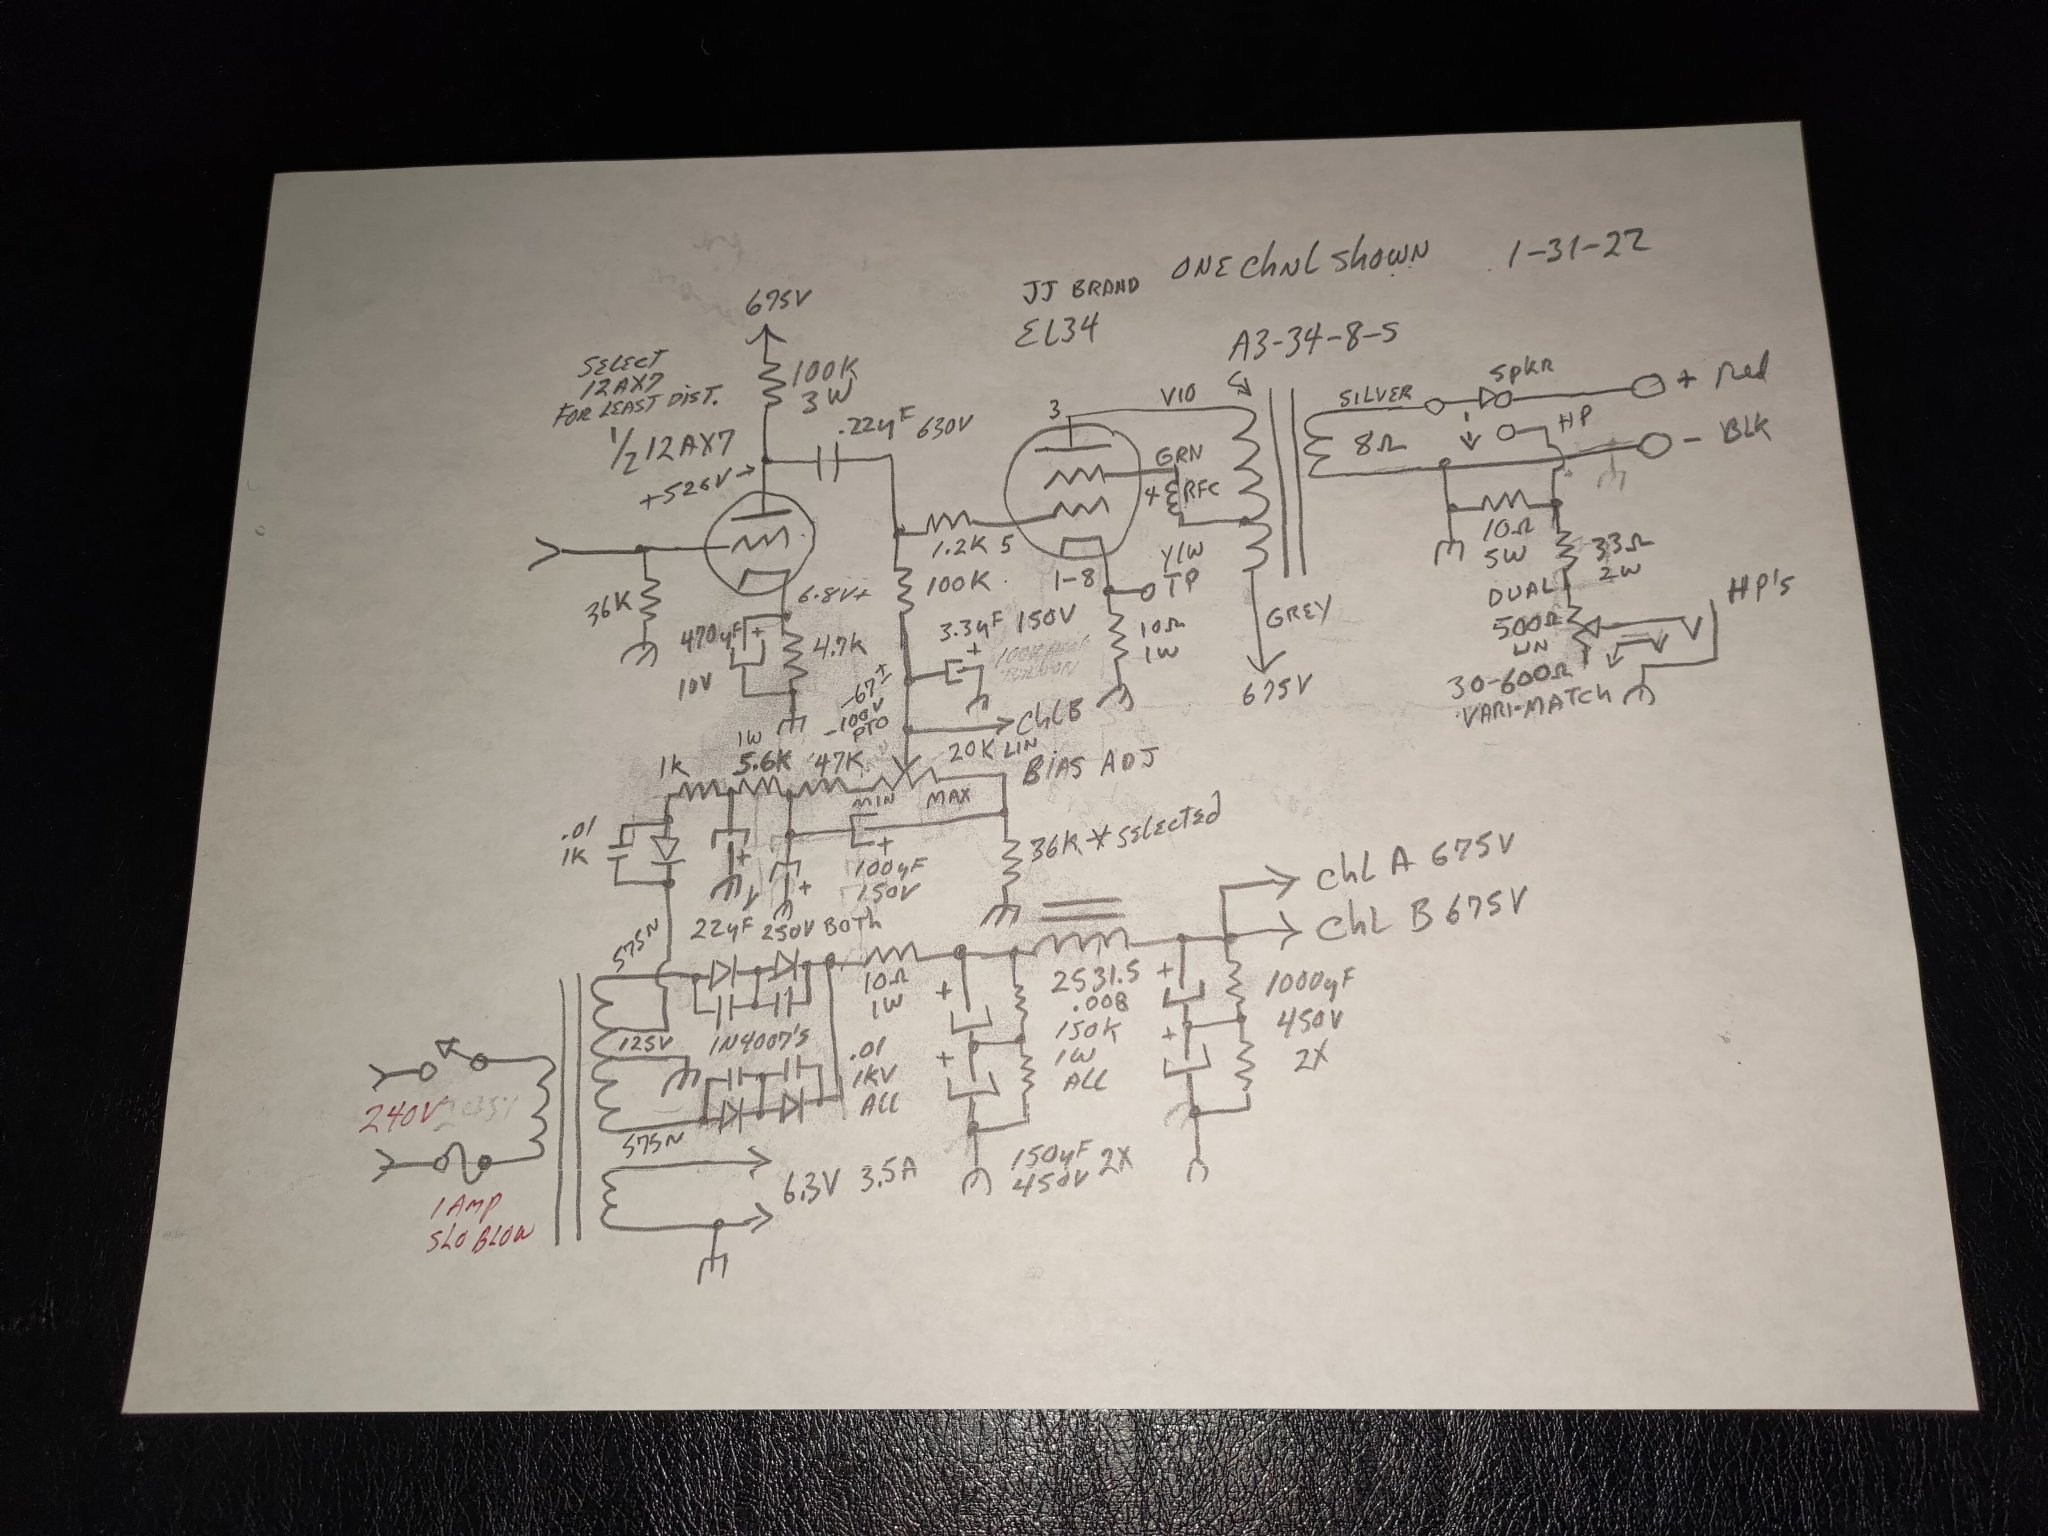 ONE ChNL ShOWN
1-31-22
JJ BRAND
EL34
A3-34-8-5
675V
SELECT
12AX7
FOR LEAST DIST.
100K
3W
.22µF 630V
1/2 12AX7
+525V
3
VIO
SILVER
SpKR
+ Red
HP
8Ω
- BLK
GRN
4
RFC
1.2K 5
10Ω
5W
33Ω
2W
36K
6.8V+
100K
1-8
Y/W
TP
DUAL
500Ω
LIN
HP's
470µF
+
10V
4.7K
3.3µF 150V
+
10Ω
1W
GREY
675V
30-600Ω
VARI-MATCh
-67±
-100V
PTO
ChLB
1K
1W
5.6K
47K
20K LIN
BIAS ADJ
MIN
MAX
.01
1K
+
+
+
100µF
150V
36K * SELECTEd
22µF 250V BOTh
ChL A 675V
ChL B 675V
575V
10Ω
1W
+
+
2531.5
.008
150K
1W
ALL
+
+
1000µF
450V
2X
125V
1N4007's
.01
1KV
ALL
240V
575V
150µF
450V 2X
6.3V 3.5A
1 AMP
SLO BLOW